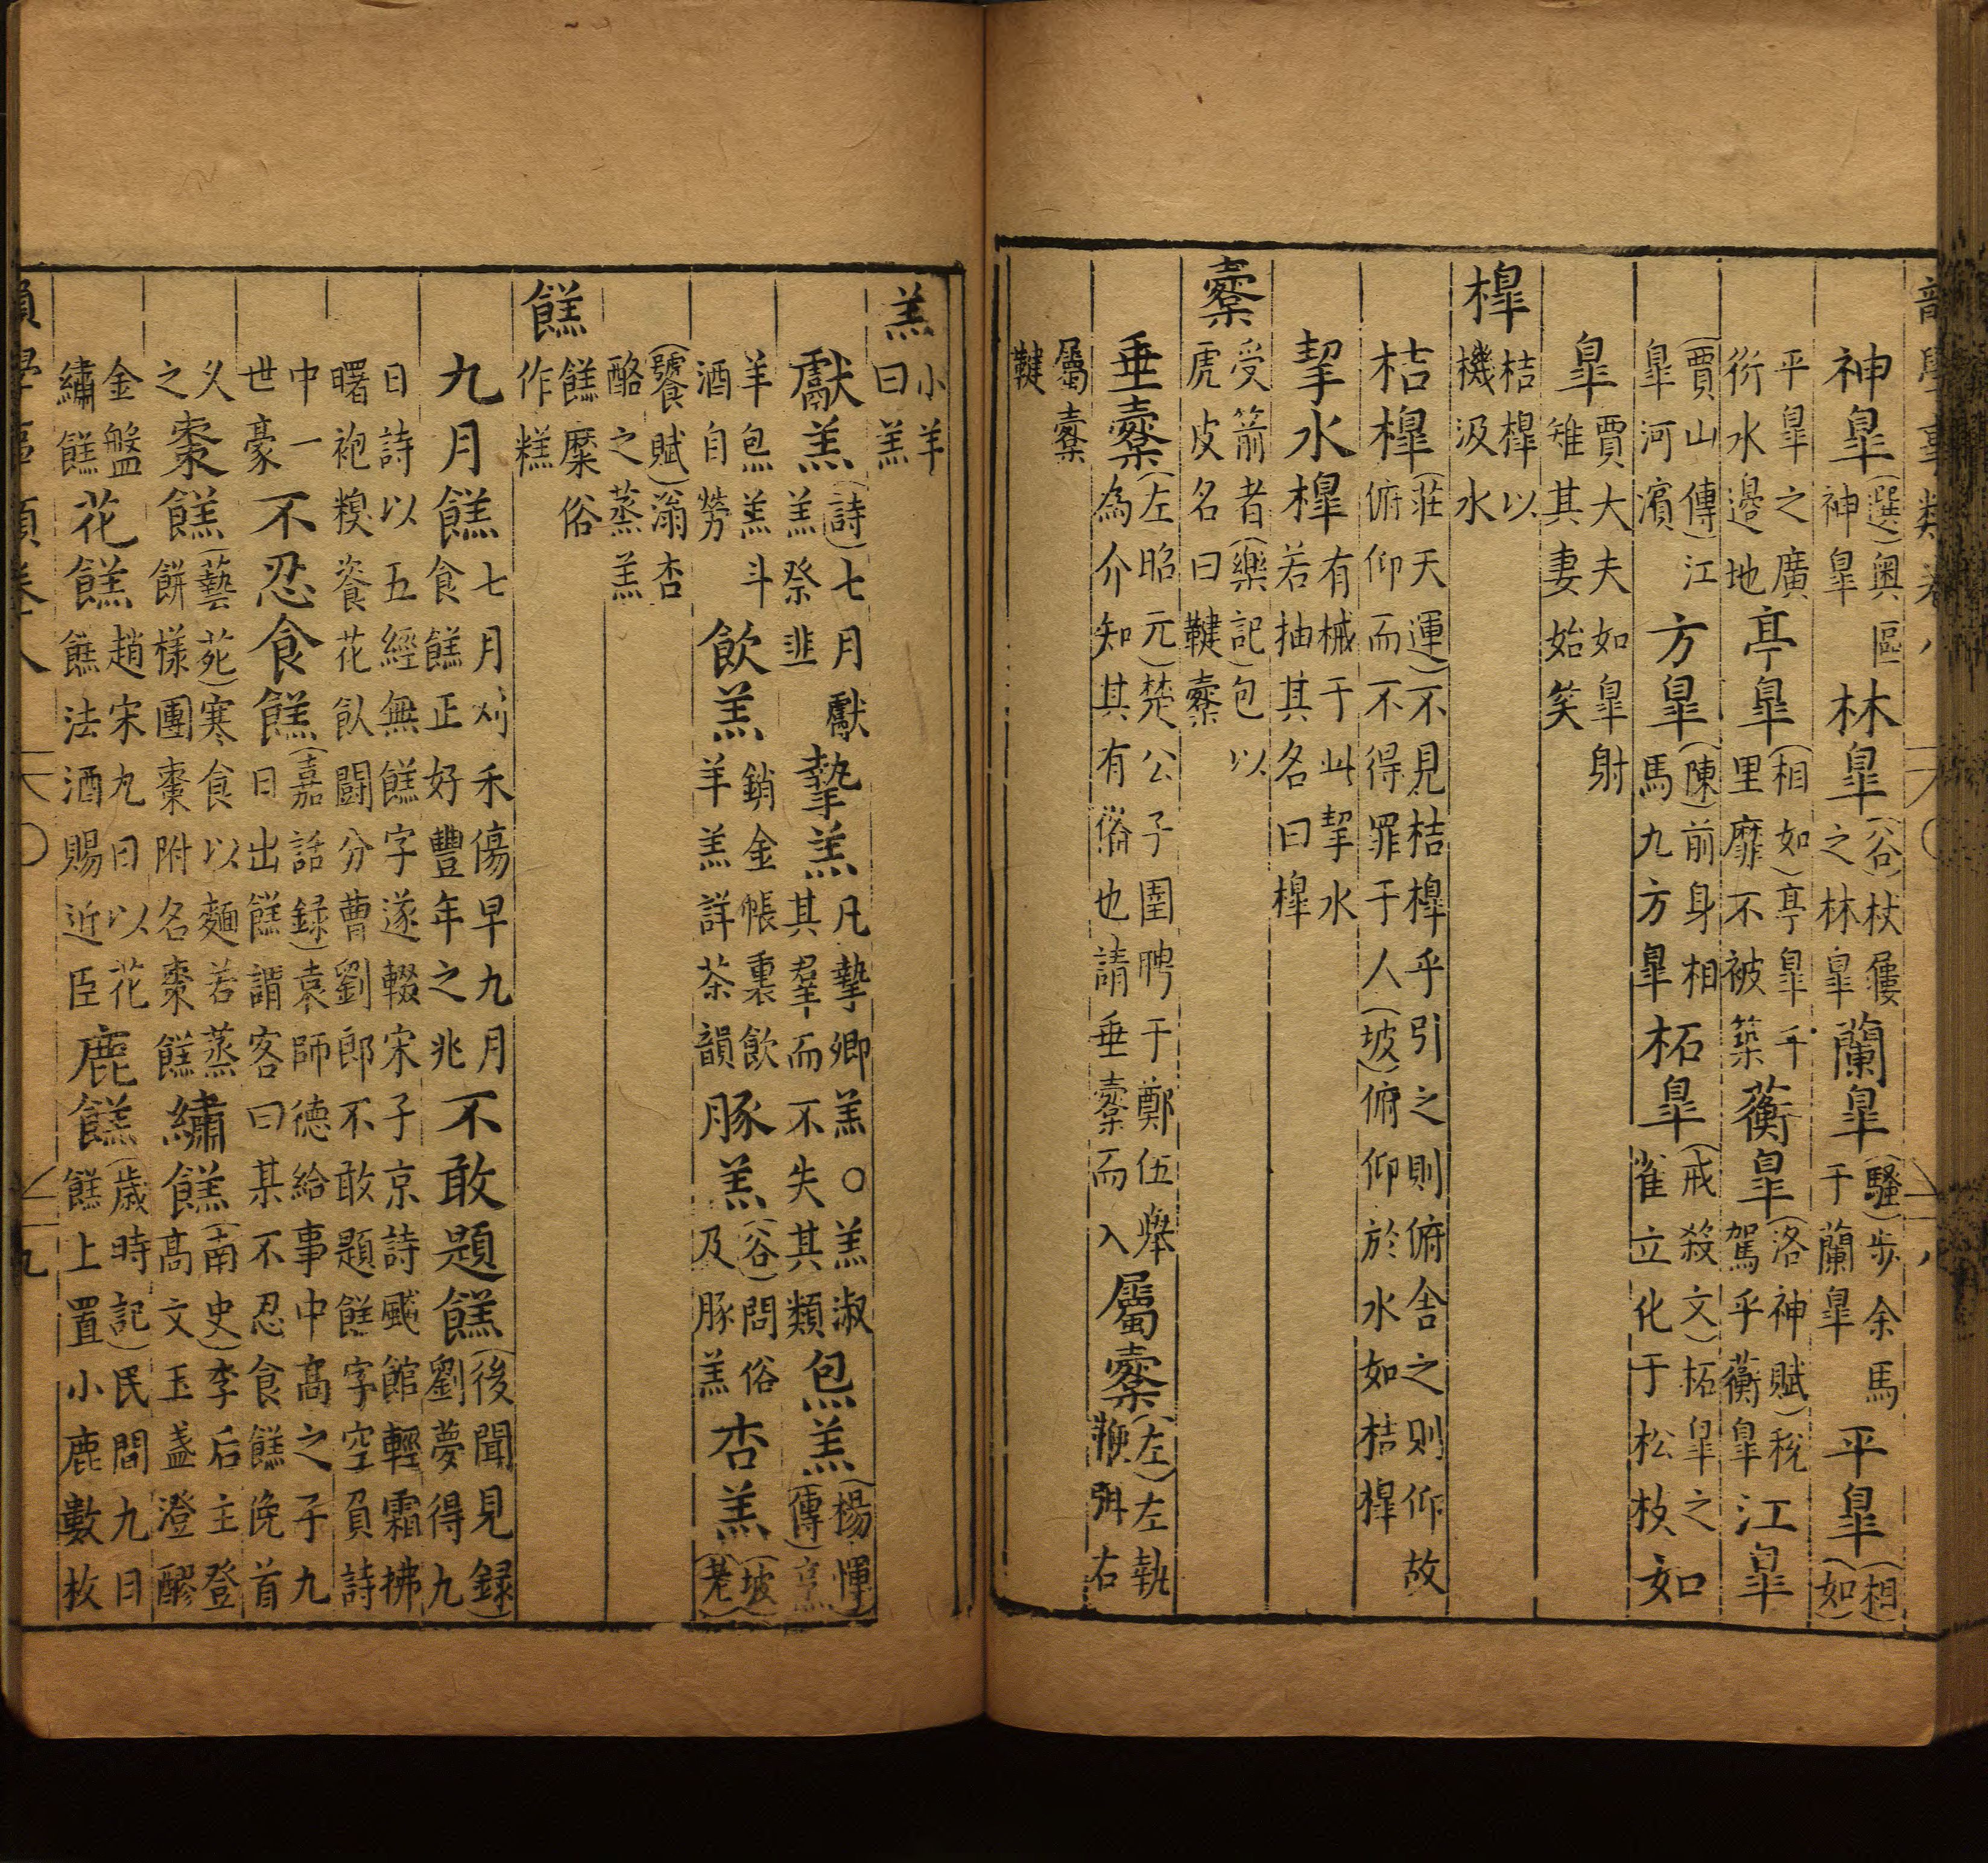 神臯(選)奥區神臯林臯(谷)杖屨之林臯蘭臯(騷)步余馬于蘭臯平臯(相如)
平臯之廣衍水邉地亭臯(相如)亭臯千里靡不被築蘅臯(洛神賦)稅駕乎蘅臯江臯
(賈山傳)江臯河濱方臯(陳)前身相馬九方臯柘臯(戒殺文)柘臯之雀立化于松枝如
臯賈大夫如臯射雉其妻始笑
槹桔槹以機汲水
桔槹(莊天運)不見桔槹乎引之則俯舎之則仰故俯仰而不得罪于人(坡)俯仰於水如桔槹
挈水槹有械于此挈水若抽其名曰槹
櫜受箭者(樂記)包以虎皮名曰鞬櫜
垂櫜(左昭元)楚公子圍聘于鄭伍舉為介知其有俻也請垂櫜而入屬櫜(左)左執鞭弭右
屬櫜鞬
羔小羊曰羔
獻羔(詩)七月獻羔祭韭摯羔凡摯卿羔○羔淑其羣而不失其類炰羔(楊惲傳)烹
羊炰羔斗酒自勞飲羔銷金帳裏飲羊羔詳茶韻豚羔(谷)問俗及豚羔杏羔(坡老)
(饕賦)滃杏酪之蒸羔
餻餻糜俗作糕
九月餻七月刈禾傷早九月食餻正好豐年之兆不敢題餻(後聞見録)劉夢得九
日詩以五經無餻字遂輟宋子京詩飇館輕霜拂曙袍糗餈花飲鬬分曹劉郎不敢題餻字空負詩
中一世豪不忍食餻(嘉話録)袁師德給事中高之子九日出餻謂客曰某不忍食餻俛首
乆之棗餻(藝苑)寒食以麵若蒸餅様團棗附名棗餻繡餻(南史)李后主登高文玉盞澄醪
金盤繡餻花餻趙宋九日以花餻法酒賜近臣鹿餻(歳時記)民間九日餻上置小鹿數枚